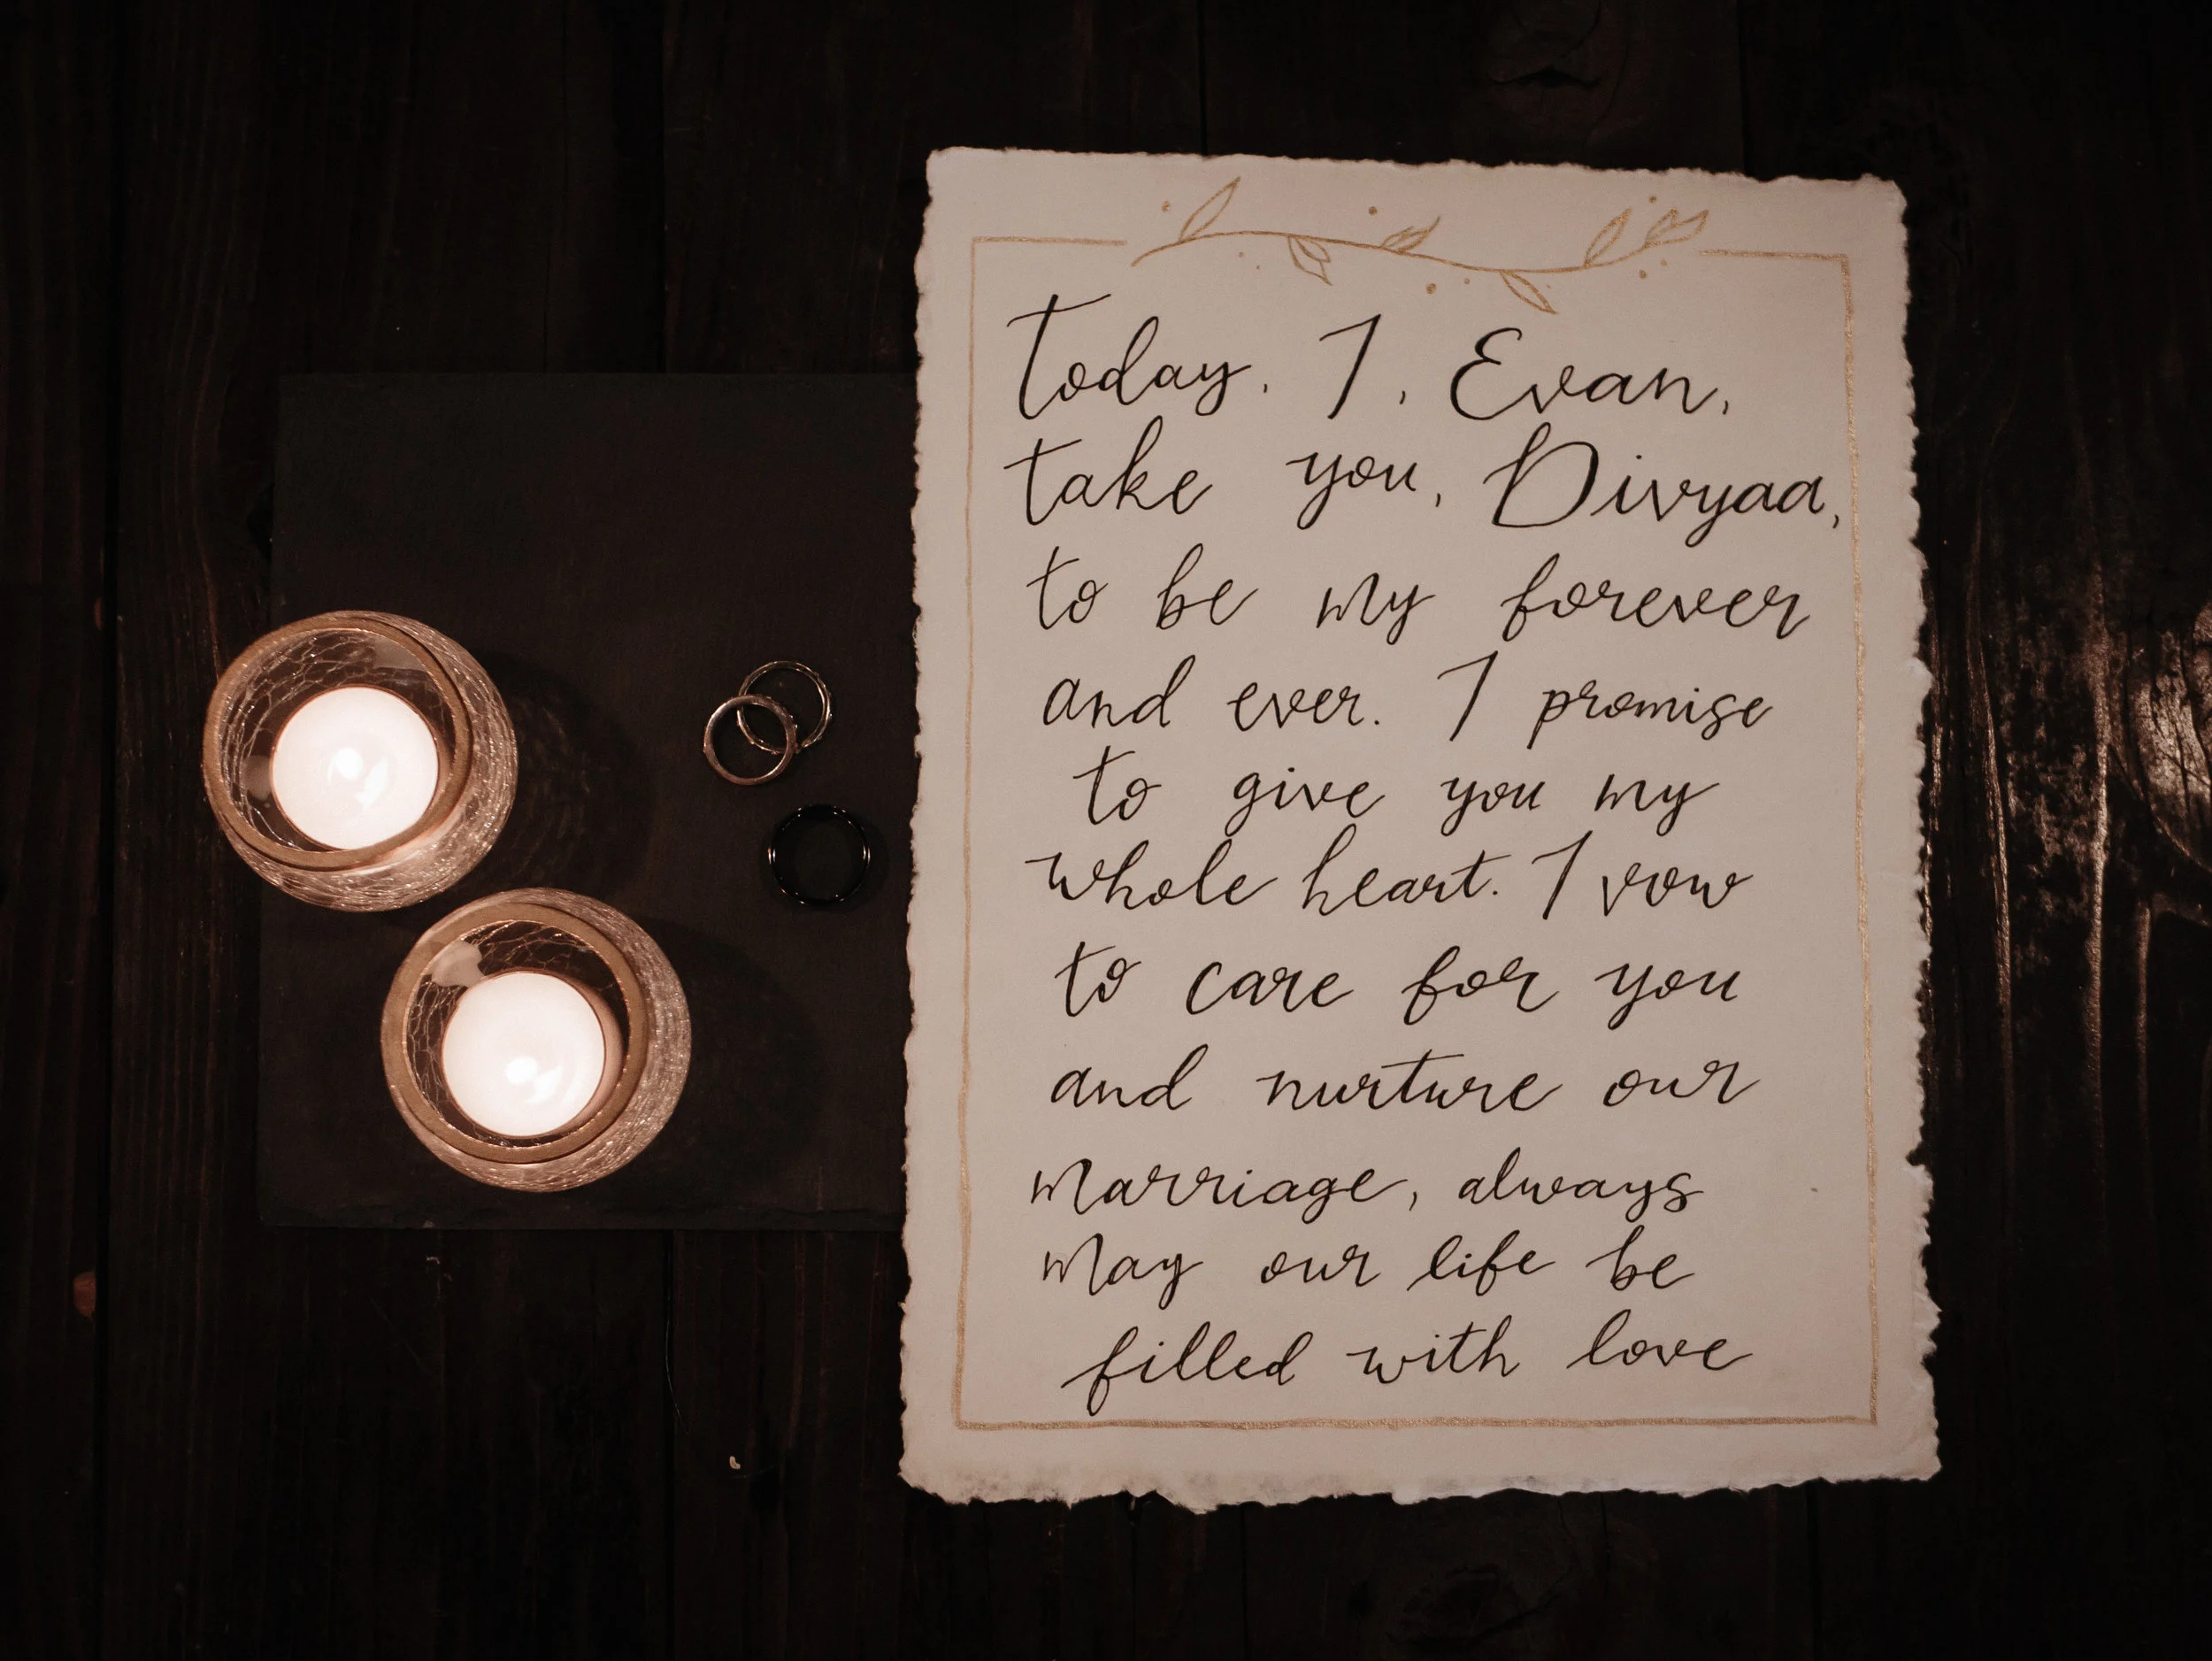 Today, I, Evan,
take you, Divyaa,
to be my forever
and ever. I promise
to give you my
whole heart. I vow
to care for you
and nurture our
marriage, always
may our life be
filled with love